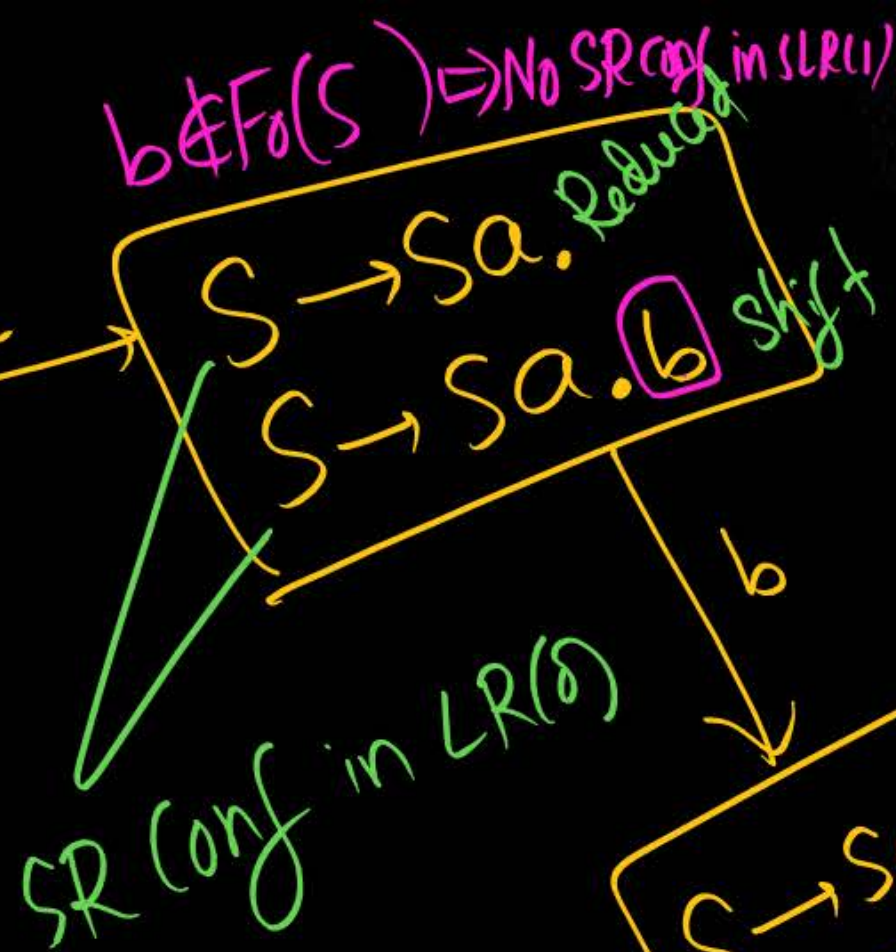 b∉Fo(S) ⇒ No SR conf in SLR(1)
S → Sa. Reduced
S → Sa.b Shift
b
SR Conf in LR(0)
S → S